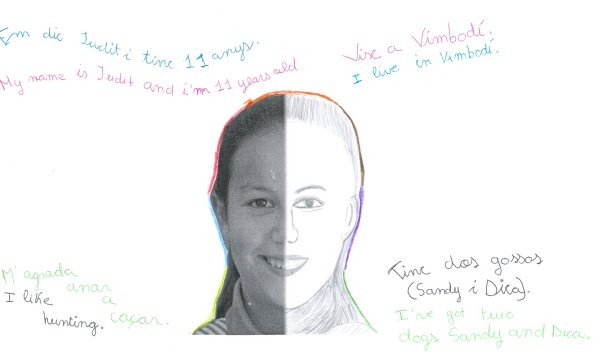 Em dic Judit i tinc 11 anys.
My name is Judit and i'm 11 years old
Visc a Vimbodí.
I live in Vimbodí.
M'agrada
anar
a
caçar.
I like
hunting.
Tinc dos gossos
(Sandy i Dica).
I've got two
dogs Sandy and Dica.